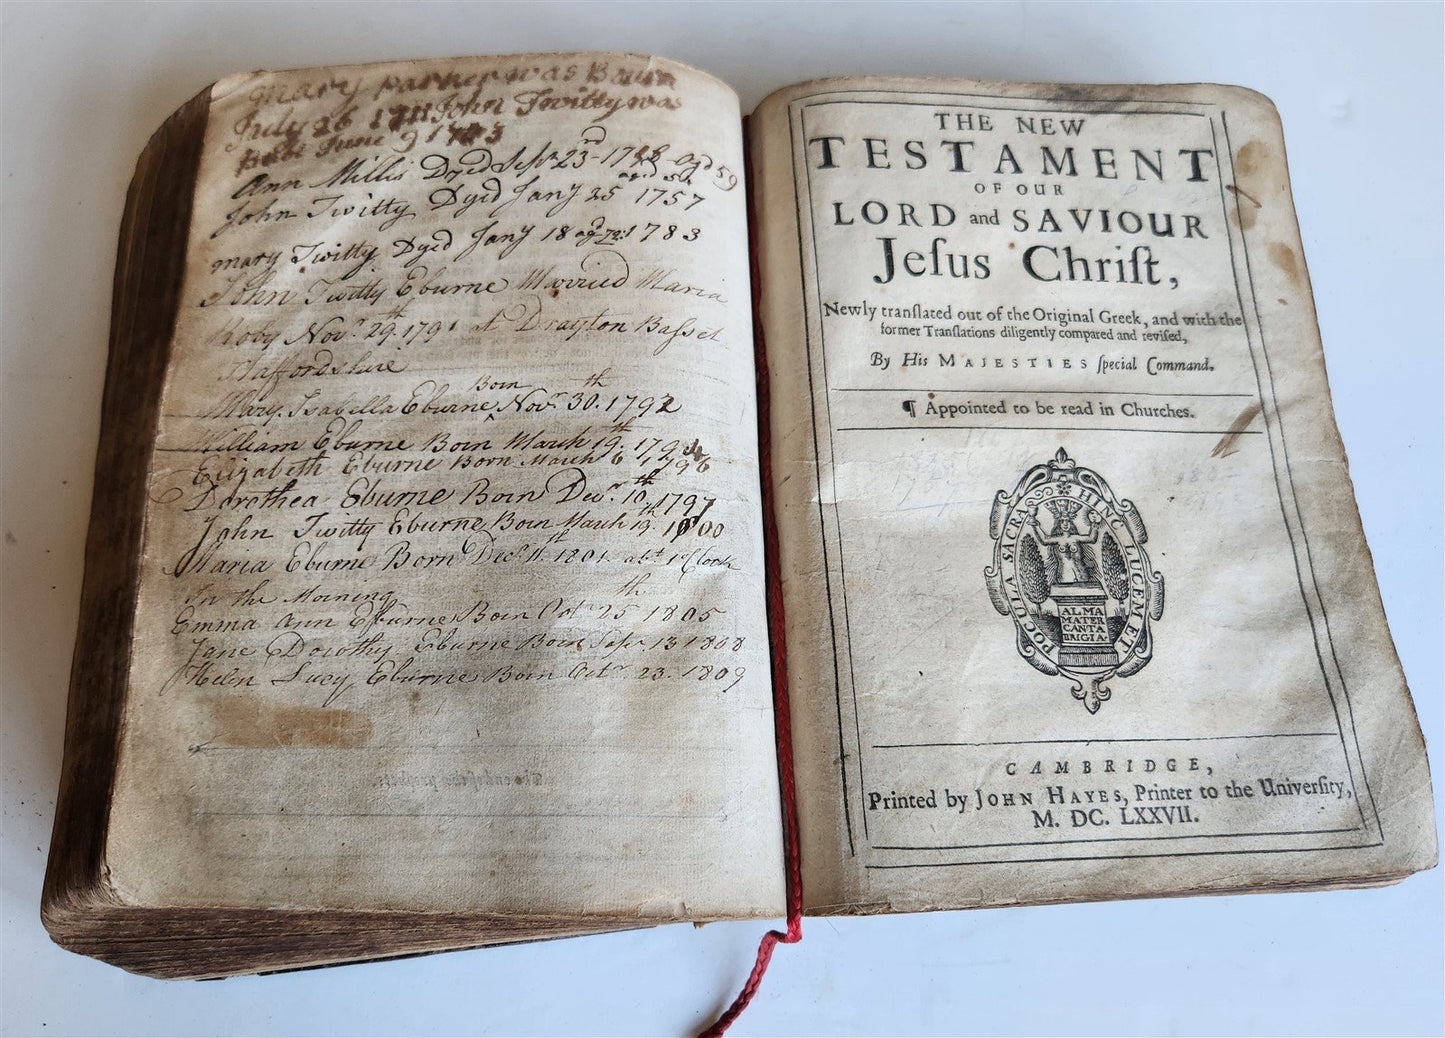 mary parner was Bawn
July 26 1711 John Twitty was
June 9 1743
Ann Millis Dyed Sepr 23rd 17 Agd 59
John Twitty Dyed Jany 25 1757 aged 56
mary Twitty Dyed Jany 18 agd 72: 1783
John Twitty Eburne Married Maria
Roby Novr 29th. 1791 at Drayton Basset
Staffordshire
Mary. Isabella Eburne Born Novr 30th. 1792
William Eburne Born March 19th. 1794
Elizabeth Eburne Born March 6 1796
Dorothea Eburne Born Decr. 10th, 1797
John Twitty Eburne Born March 19th. 1800
Maria Eburne Born Decr 11th. 1801. at 1 o'Clock
In the Morning
Emma Ann Eburne Born Octr 25th 1805
Jane Dorothy Eburne Born Sepr 13 1808
Helen Lucy Eburne Born Octr 23. 1809
THE NEW
TESTAMENT
OF OUR
LORD and SAVIOUR
Jeſus Chriſt,
Newly tranſlated out of the Original Greek, and with the
former Tranſlations diligently compared and reviſed,
By His MAJESTIES ſpecial Command.
¶ Appointed to be read in Churches.
HINC LUCEM ET POCULA SACRA
ALMA
MATER
CANTA
BRIGIA
CAMBRIDGE,
Printed by JOHN HAYES, Printer to the Univerſity,
M. DC. LXXVII.